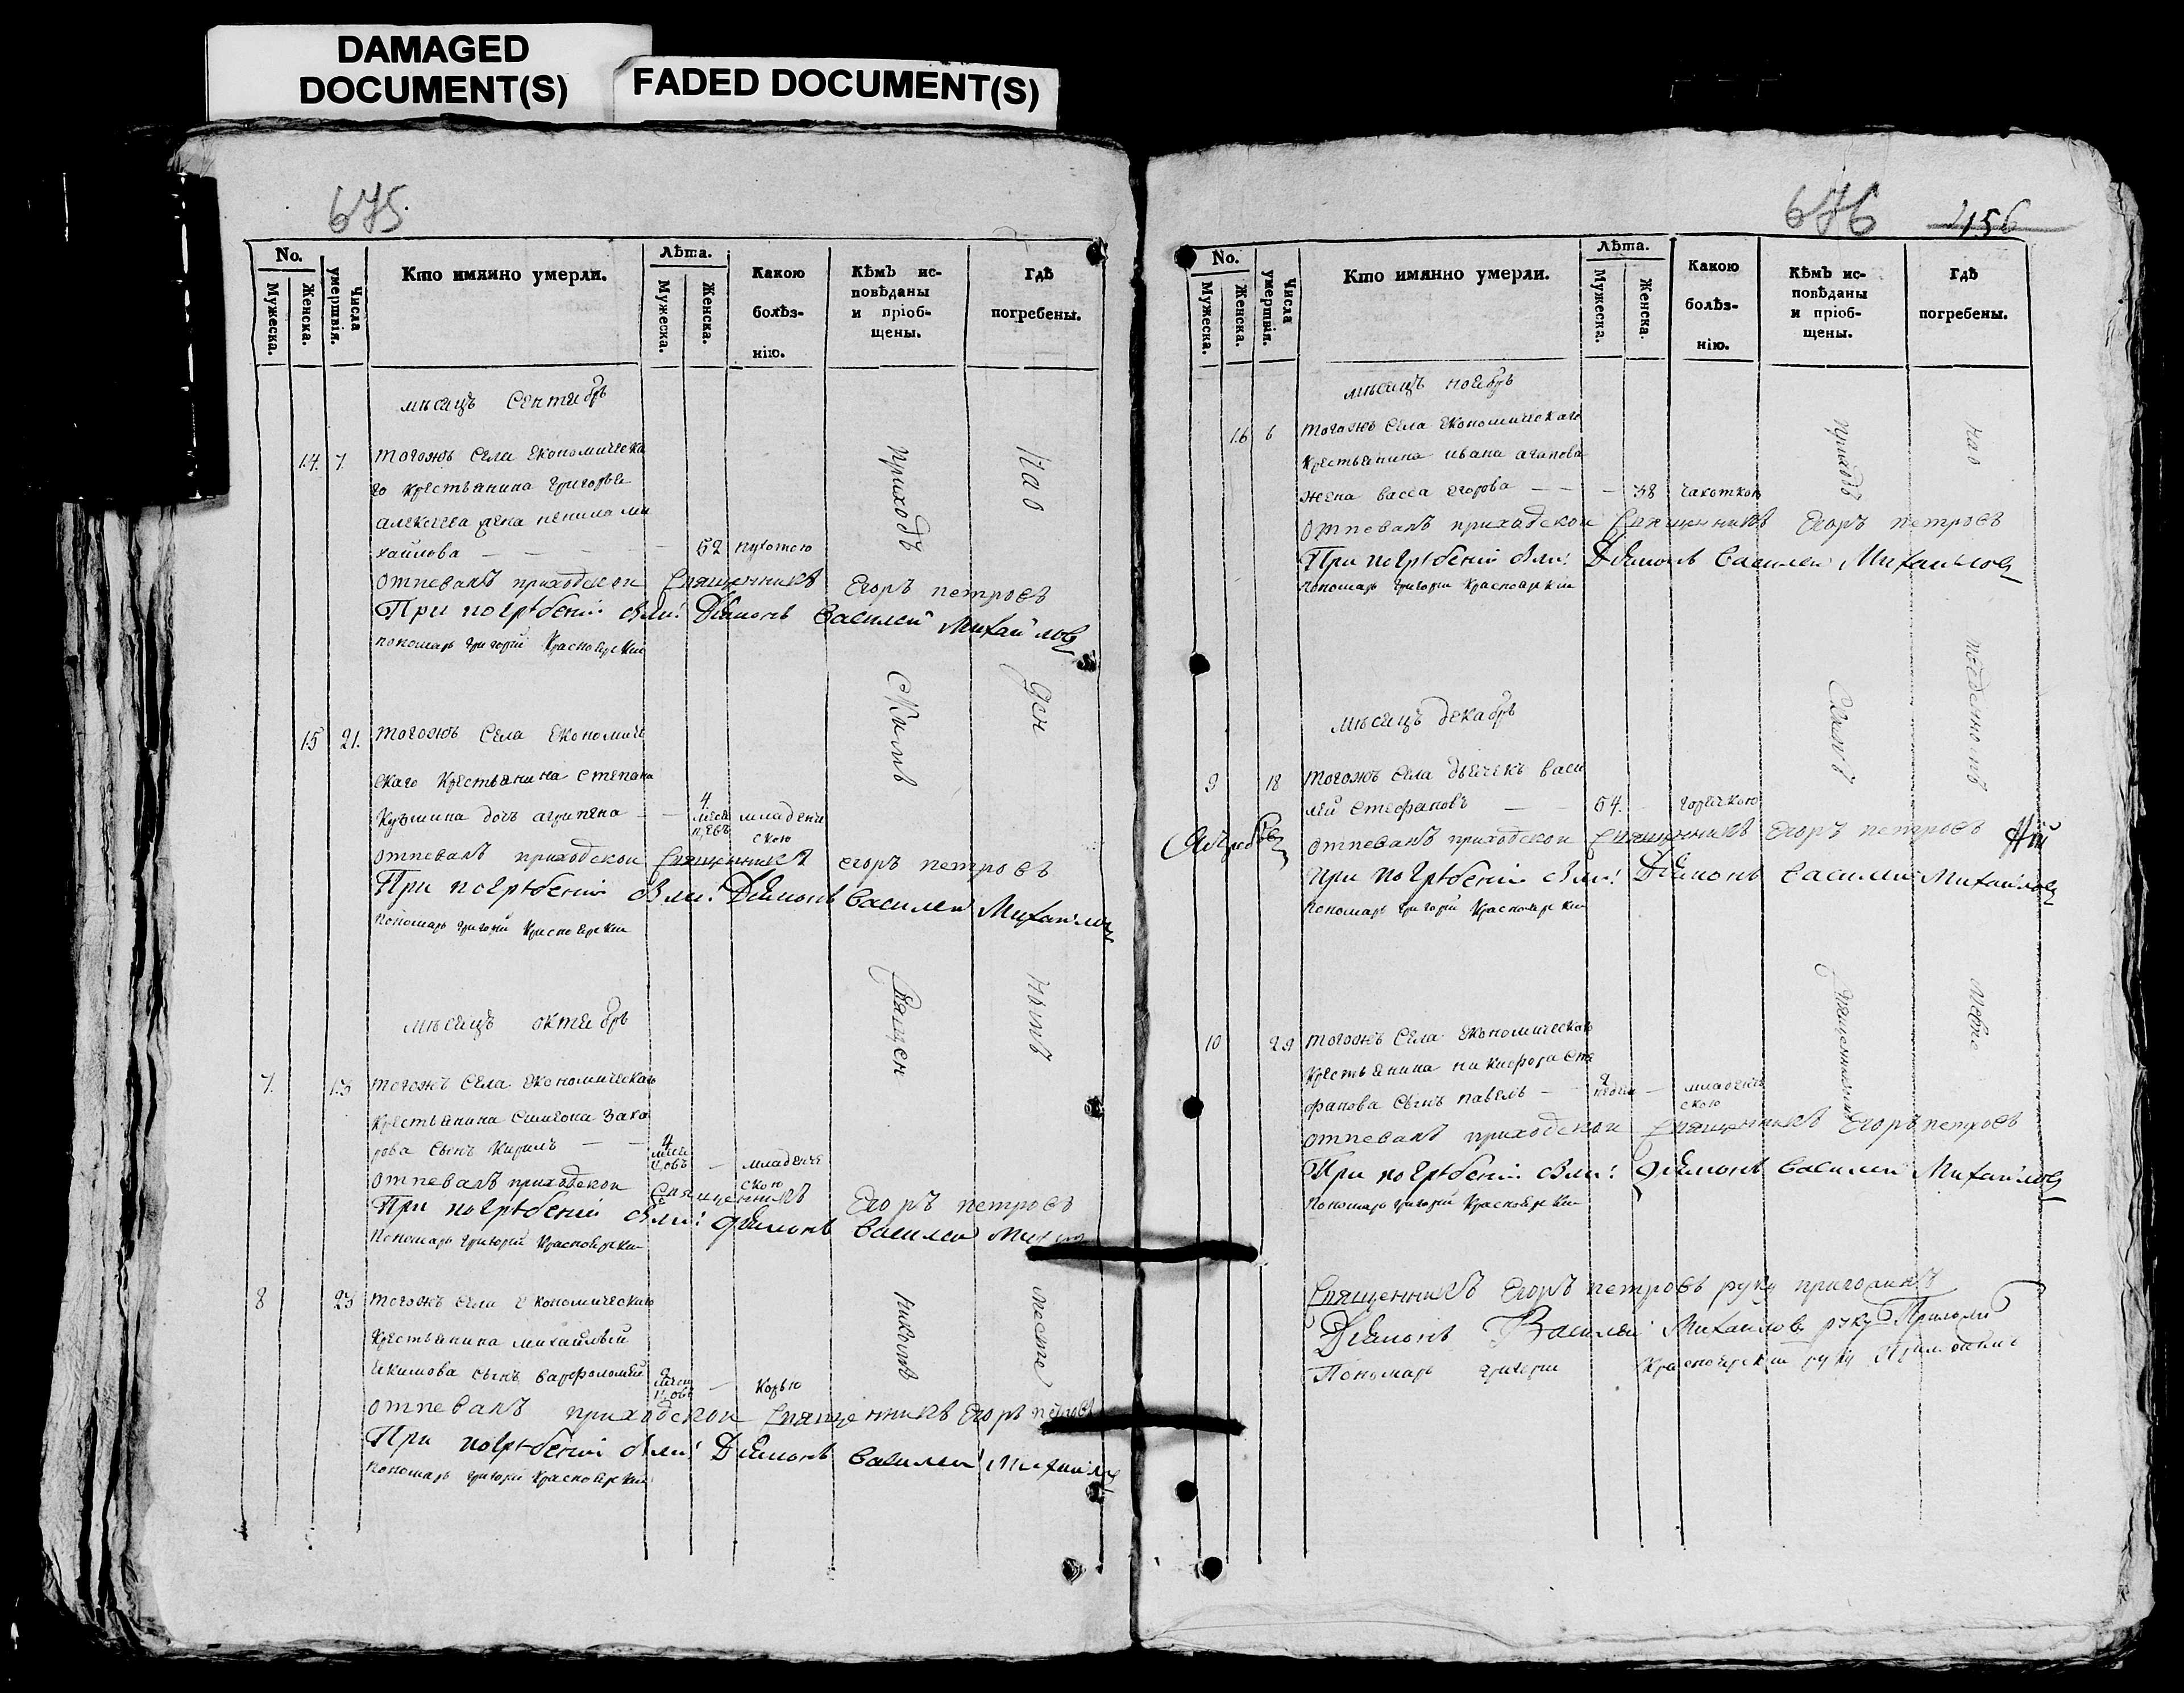 DAMAGED
DOCUMENT(S)
FADED DOCUMENT(S)
675.
No.
Мужеска.
Женска.
Числа умертвія.
Кто имянно умерли.
Лѣта.
Мужеска.
Женска.
Какою болѣз-нію.
Кѣмъ ис-повѣданы и пріоб-щены.
Гдѣ погребены.
мѣсяцъ Сентябрь
14. 7. тогожъ Села Економическа
го крестьянина григорья
алексеева жена ненила ми
хайлова — — — — 62 пухотою
отпевалъ приходской Священникъ Егоръ петровъ
При погрѣбеніи были: Діяконъ Василей Михайловъ
пономарь григорій Красноярскій
15 21. тогожъ Села Економиче
скаго Крестьянина степана
Кузмина дочь агрипена — — 4. меся цевъ младенче
скою
отпевалъ приходской Священникъ егоръ петровъ
При погрѣбеніи были: Діяконъ Василей Михайловъ
Пономарь григорій Красноярскій
мѣсяцъ октябрь
7. 13 тогожъ Села Економическаго
крестьянина Симиона Заха
рова сынъ Кирилъ — — 4 меся цовъ — младенче
скою
отпевалъ приходской Священникъ Егоръ петровъ
При погрѣбеніи были: Діяконъ Василей
Пономарь григорій Красноярскій
8 23 тогожъ села Економическаго
Крестьянина михайлы
екимова сынъ варфоломей — корью
отпевалъ приходской Священникъ Егоръ петровъ
При погрѣбеніи были: Діяконъ Василей Михайловъ
Пономарь григорій Красноярскій
приходскимъ Священникомъ
На о месте
676 156
No.
Мужеска.
Женска.
Числа умертвія.
Кто имянно умерли.
Лѣта.
Мужеска.
Женска.
Какою болѣз-нію.
Кѣмъ ис-повѣданы и пріоб-щены.
Гдѣ погребены.
мѣсяцъ ноябрь
16 6 тогожъ Села Економическаго
крестьянина ивана агапова
жена васса егорова — — — 38 чахоткою
отпевалъ приходской Священникъ Егоръ петровъ
При погрѣбеніи были: Діяконъ Василей Михайловъ
Пономарь григорій Красноярскій
мѣсяцъ декабрь
9 18 тогожъ Села дьячекъ васи
лей стефановъ — — 54. — горячкою
отпевалъ приходской Священникъ Егоръ петровъ
При погрѣбеніи были: Діяконъ Василей Михайловъ
Пономарь григорій Красноярскій
10 29 тогожъ Села Економическаго
крестьянина никифора сте
фанова сынъ павелъ — — младенче
скою
отпевалъ приходской Священникъ Егоръ петровъ
При погрѣбеніи были: діяконъ Василей Михайловъ
Пономарь григорій Красноярскій
Священникъ Егоръ петровъ руку приложилъ
Діяконъ Василей Михайловъ руку Приложи
Пономарь григорій Красноярскій руку
месте